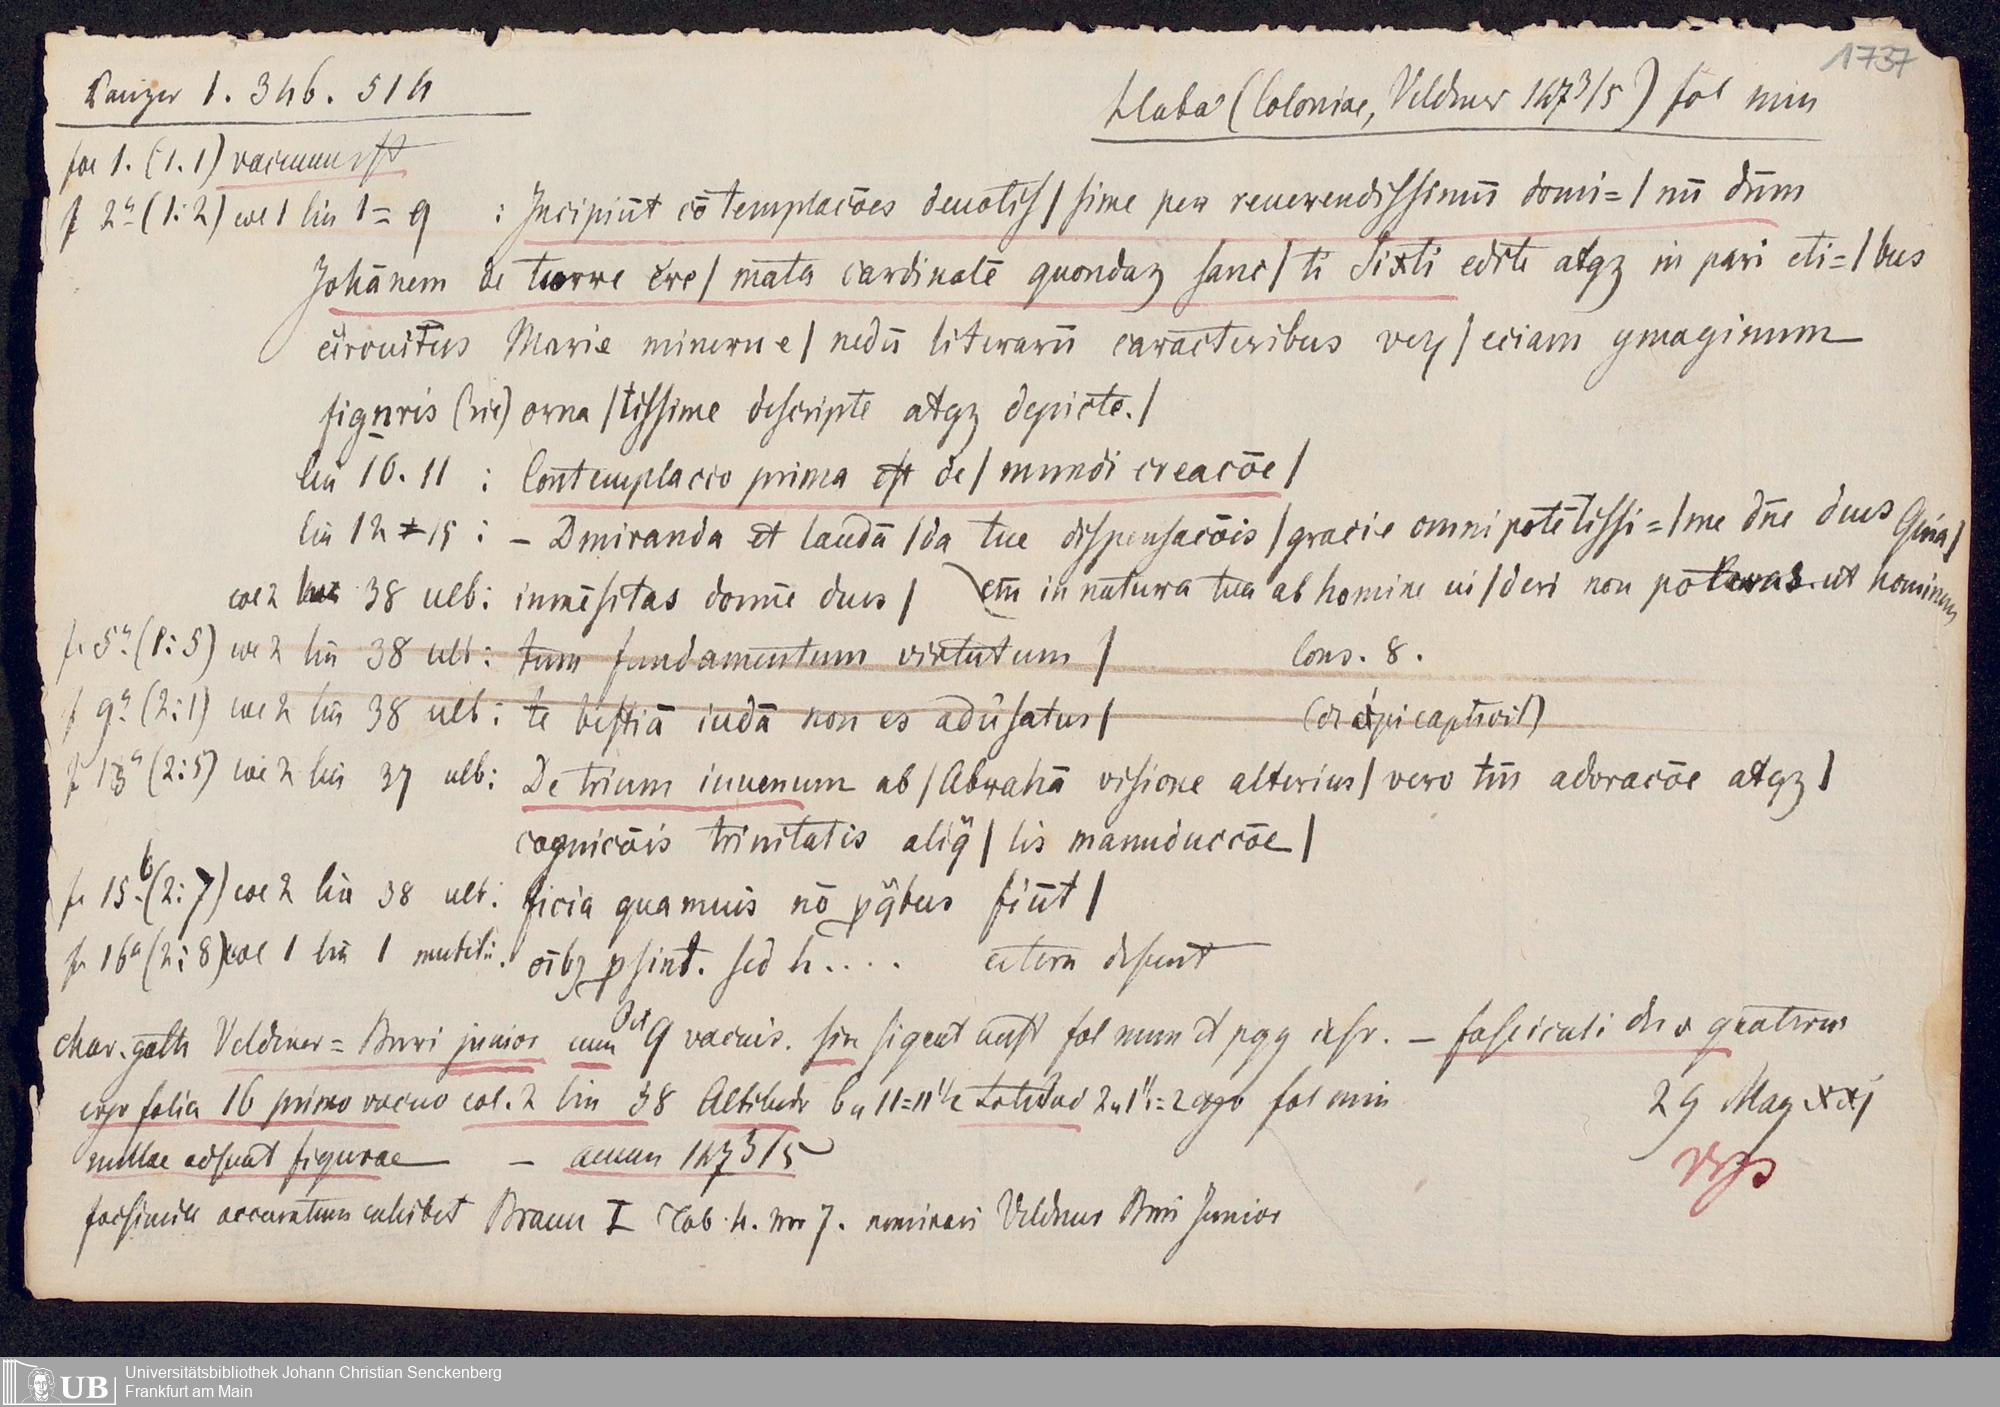 1737
Panzer 1. 346. 514
(Coloniae, Veldener 1473/5) fol min
fol 1. (1.1) vacuum est
f 2a (1:2) col 1 lin 1 = 9 : Incipiūt cōtemplacōes deuotis/ sime per reuerendissimū domi=/ nū dn̄m
Johānem de turre cre/ mata cardinalē quondaʒ sanc/ ti Sixti edite atqʒ in pari eti=/ bus
circuitus Marie minerue/ nedū literarū caracteribus / eciam ymaginum
fignris (sic) orna/tissime descripte atqʒ depicte./
lin 10. 11 : Contemplacio prima est de/ mundi creacōe/
lin 12 = 15 : - Dmiranda et laudā/da tue dispensacōis/ gracie omnipotētissi=/me dn̄e deus Quia/
col 2 lin 38 ult: inmēsitas domīe deus/ etn in natura tua ab homine ui/deri non poteras ut hominem
f. 5a (1:5) col 2 lin 38 ult: tum fundamentum virtutum/ Cons. 8.
f 9a (2:1) col 2 lin 38 ult: te bestiā iudā non es adūsatus/
f 13a (2:5) col 2 lin 37 ulb: De trium iuuenum ab/ Abrahā visione alterius/ vero tn̄ adoracōe atqʒ/
cognicōis trinitatis aliq̄/ lis manuduccōe/
f. 15b (2:7) col 2 lin 38 ult: ficia quamuis nō fiūt/
f 16a (2:8) col 1 lin 1 mutil: oībʒ ꝑsint. sed h.... cetera desunt
char. goth Veldener = Buri junior cum 9 vacuis. sin signat cust fol num et pgg inscr. - fasciculi duo quaterni
ergo folia 16 primo vacuo col. 2 lin 38 Altitudo 6" 11 = 11½ Latitud 2" 1"= 2 ergo fol min
nullae adsunt figurae - annum 1473/5 29 May xxj
facsimile accuratum exhibet Braun I Tab. 4. nro 7. nominavi Veldener Buri Junior
Universitätsbibliothek Johann Christian Senckenberg
UB Frankfurt am Main